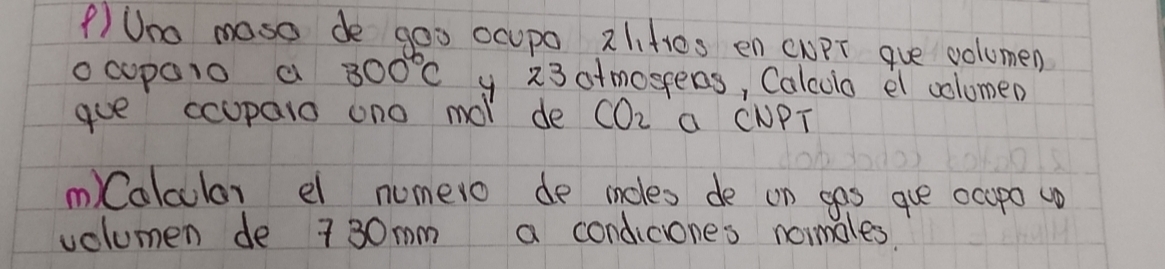 f) Una masa de gas ocupa 2 litros en CNPT que volumen
ocupara a 300°C y 23 atmosferas, Calcula el volumen
que ocupara una mol de CO2 a CNPT
m) Calcular el numero de moles de un gas que ocupa un
volumen de 730mm a condiciones normales.